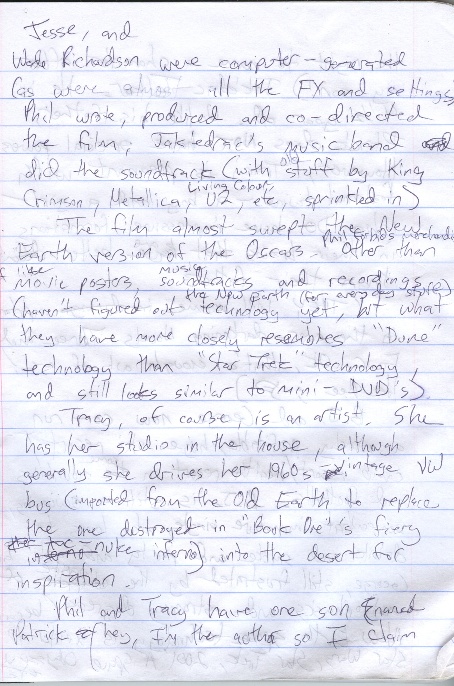 Jesse, and
Wade Richardson were computer-generated
(as were all the FX and settings)
Phil wrote, produced and co-directed
the film, Jak'edrac's music band
did the soundtrack (with old stuff by King
Crimson, Metallica, Living Colour, U2, etc, sprinkled in)
The film almost swept the New
Earth version of the Oscars. Other than
movie posters, music, soundtracks and recordings
(haven't figured out the New Earth technology (for everyday store) yet, but what
they have more closely resembles "Dune"
technology than "Star Trek" technology,
and still looks similar to mini-DVD's)
Tracy, of course, is an artist. She
has her studio in the house, although
generally she drives her 1960s vintage VW
bus (imported from the Old Earth to replace
the one destroyed in "Book One"'s fiery
nuke inferno) into the desert for
inspiration.
Phil and Tracy have one son (named
Patrick hey, I'm the author so I claim